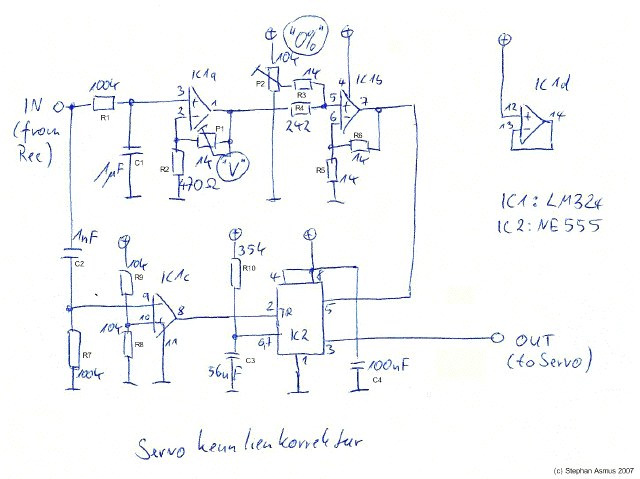 "0%"
104
P2
IC1a
100k
IN
(from
Rec)
R1
3
1
2
14
R3
R4
242
IC1b
4
5
7
6
P1
14
"V"
R6
14
R2
470Ω
R5
14
1µF
C1
IC1d
12
13
14
IC1: LM324
IC2: NE555
1nF
C2
104
R9
IC1c
9
10
8
11
104
R8
R7
100k
354
R10
4
8
2
TR
5
6,7
IC2
3
1
C3
56nF
100nF
C4
OUT
(to Servo)
Servo kennlienkorrektur
(c) Stephan Asmus 2007